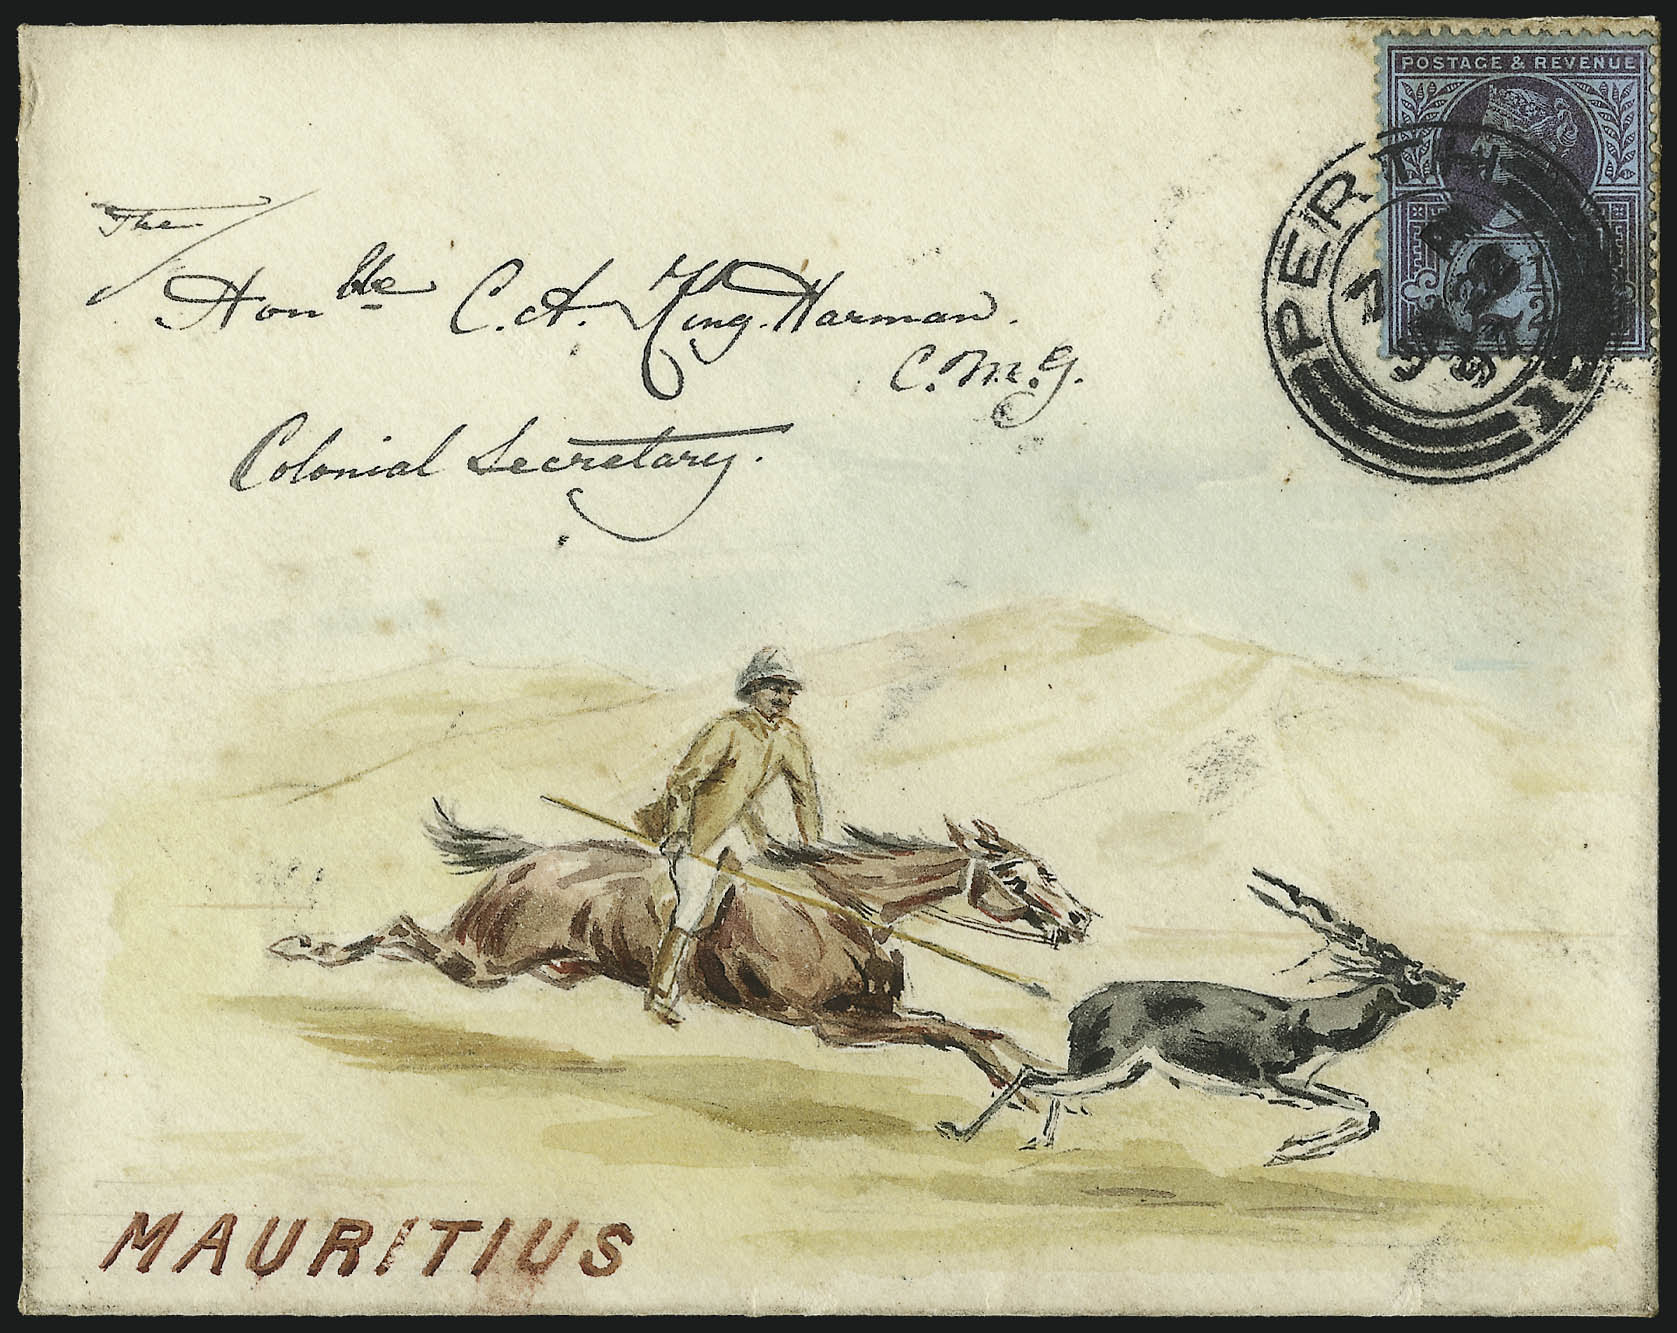 POSTAGE & REVENUE
PERTH
The
Honble C. A. King-Harman.
C.M.G.
Colonial Secretary.
MAURITIUS